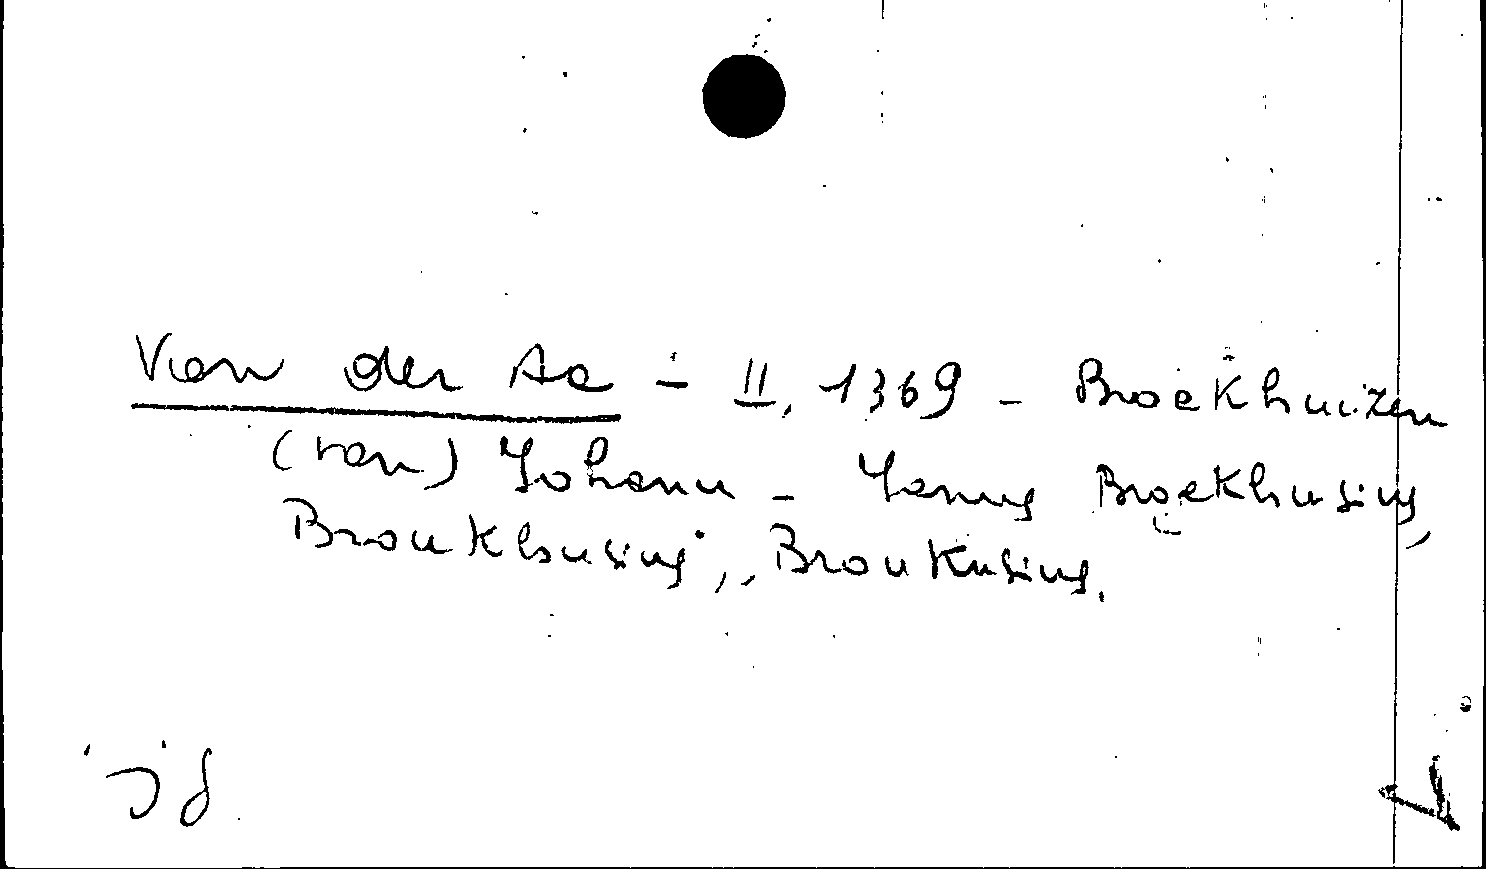 Van der Aa - II, 1369 - Broekhuizen
(van) Johann - Janus Broekhusius,
Broukhusius, Broukusius.